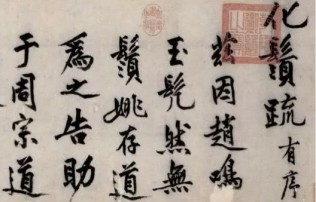 化鬚疏有序
茲因趙鳴
玉髡然無
鬚姚存道
為之告助
于周宗道